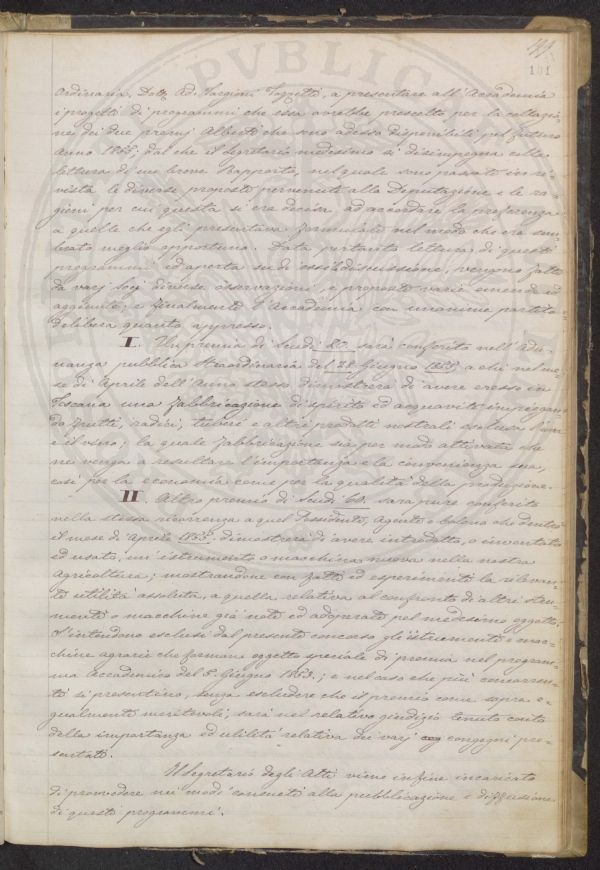 101
Ordinaria, Dott. Ad. Targioni Tozzetti, a presentare all'Accademia
i progetti di programmi che essa avrebbe prescelto per la collazio-
ne dei due premj Alberti che sono adesso disponibili pel futuro
Anno 1855; dal che il Segretario medesimo si disimpegna colla
lettura di un breve Rapporto, nel quale sono passate in ri-
vista le diverse proposte pervenute alla Deputazione e le ra-
gioni per cui questa si era decisa ad accordare la preferenza
a quelle che egli presentava formulate nel modo che era sem-
brato meglio opportuno. Data pertanto lettura di questi
programmi, ed aperta su di essi la discussione, vengono fatte
da varj Socj diverse osservazioni, e proposte varie emende ed
aggiunte; e finalmente l'Accademia con unanime partito
delibera quanto appresso.
I. Un premio di Scudi 60. sarà conferito nell'Adu-
nanza pubblica straordinaria del 28 Giugno 1855, a chi nel me-
se di Aprile dell'Anno stesso dimostrerà di avere eretto in
Toscana una fabbricazione di spirito ed acquavite impiegan-
do frutti, radici, tuberi e altri prodotti nostrali escluso l'uva
e il vino; la quale fabbricazione sia per modo attivata che
ne venga a resultare l'importanza e la convenienza sua,
così per la economia come per la qualità della produzione.
II. Altro premio di Scudi 60. sarà pure conferito
nella stessa ricorrenza a quel Possidente, Agente o Colono che dentro
il mese di Aprile 1855, dimostrerà di avere introdotto, o inventato
ed usato, un'istrumento o macchina nuova nella nostra
Agricoltura; mostrandone con fatti ed esperimenti la rilevan-
te utilità assoluta, e quella relativa al confronto di altri stru-
menti o macchine già note ed adoprate pel medesimo oggetto.
S'intendono esclusi dal presente concorso gli istrumenti o mac-
chine agrarie che formano oggetto speciale di premio nel program-
ma Accademico del 5 Giugno 1853.; e nel caso che più concorren-
ti si presentino, senza escludere che il premio come sopra e-
gualmente meritevoli, sarà nel relativo giudizio tenuto conto
della importanza ed utilità relativa dei varj congegni pre-
sentati.
Il Segretario degli Atti viene in fine incaricato
di provvedere nei modi consueti alla pubblicazione e diffusione
di questi programmi.